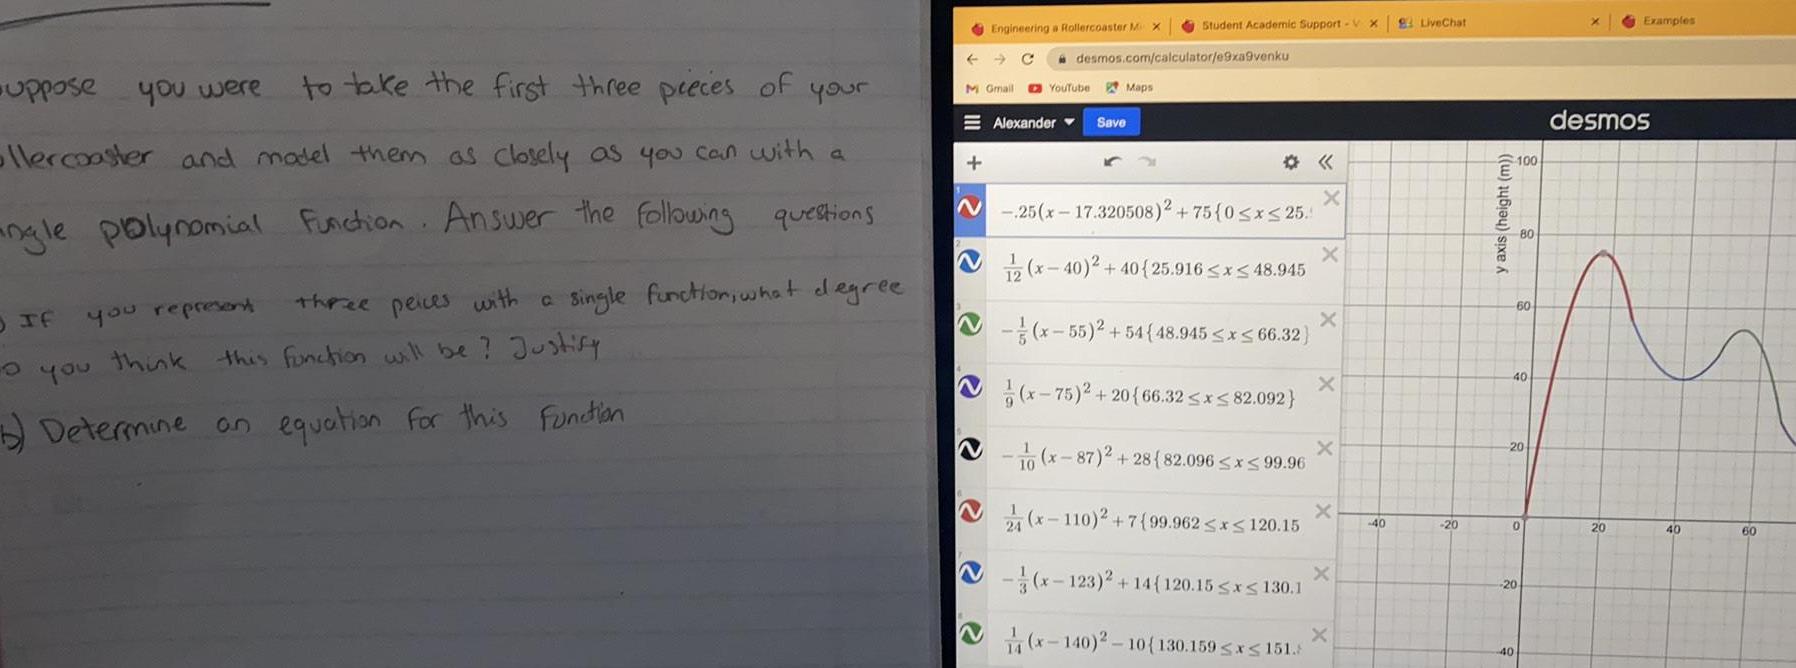 uppose you were to take the first three pieces of your
ollercoaster and model them as closely as you can with a
ngle polynomial function. Answer the following questions
) If you represent three peices with a single function, what degree
o you think this function will be? Justify
b) Determine an equation for this function
Engineering a Rollercoaster M
Student Academic Support - V
LiveChat
Examples
desmos.com/calculator/e9xa9venku
Gmail YouTube Maps
Alexander Save desmos
1
-.25(x - 17.320508)² + 75{0 ≤ x ≤ 25.
2
1/12 (x - 40)² + 40{25.916 ≤ x ≤ 48.945
3
-1/5 (x - 55)² + 54{48.945 ≤ x ≤ 66.32}
4
1/9 (x - 75)² + 20{66.32 ≤ x ≤ 82.092}
5
-1/10 (x - 87)² + 28{82.096 ≤ x ≤ 99.96
6
1/24 (x - 110)² + 7{99.962 ≤ x ≤ 120.15
7
-1/3 (x - 123)² + 14{120.15 ≤ x ≤ 130.1
8
1/14 (x - 140)² - 10{130.159 ≤ x ≤ 151.
y axis (height (m))
100
80
60
40
20
-40 -20 0 20 40 60
-20
-40